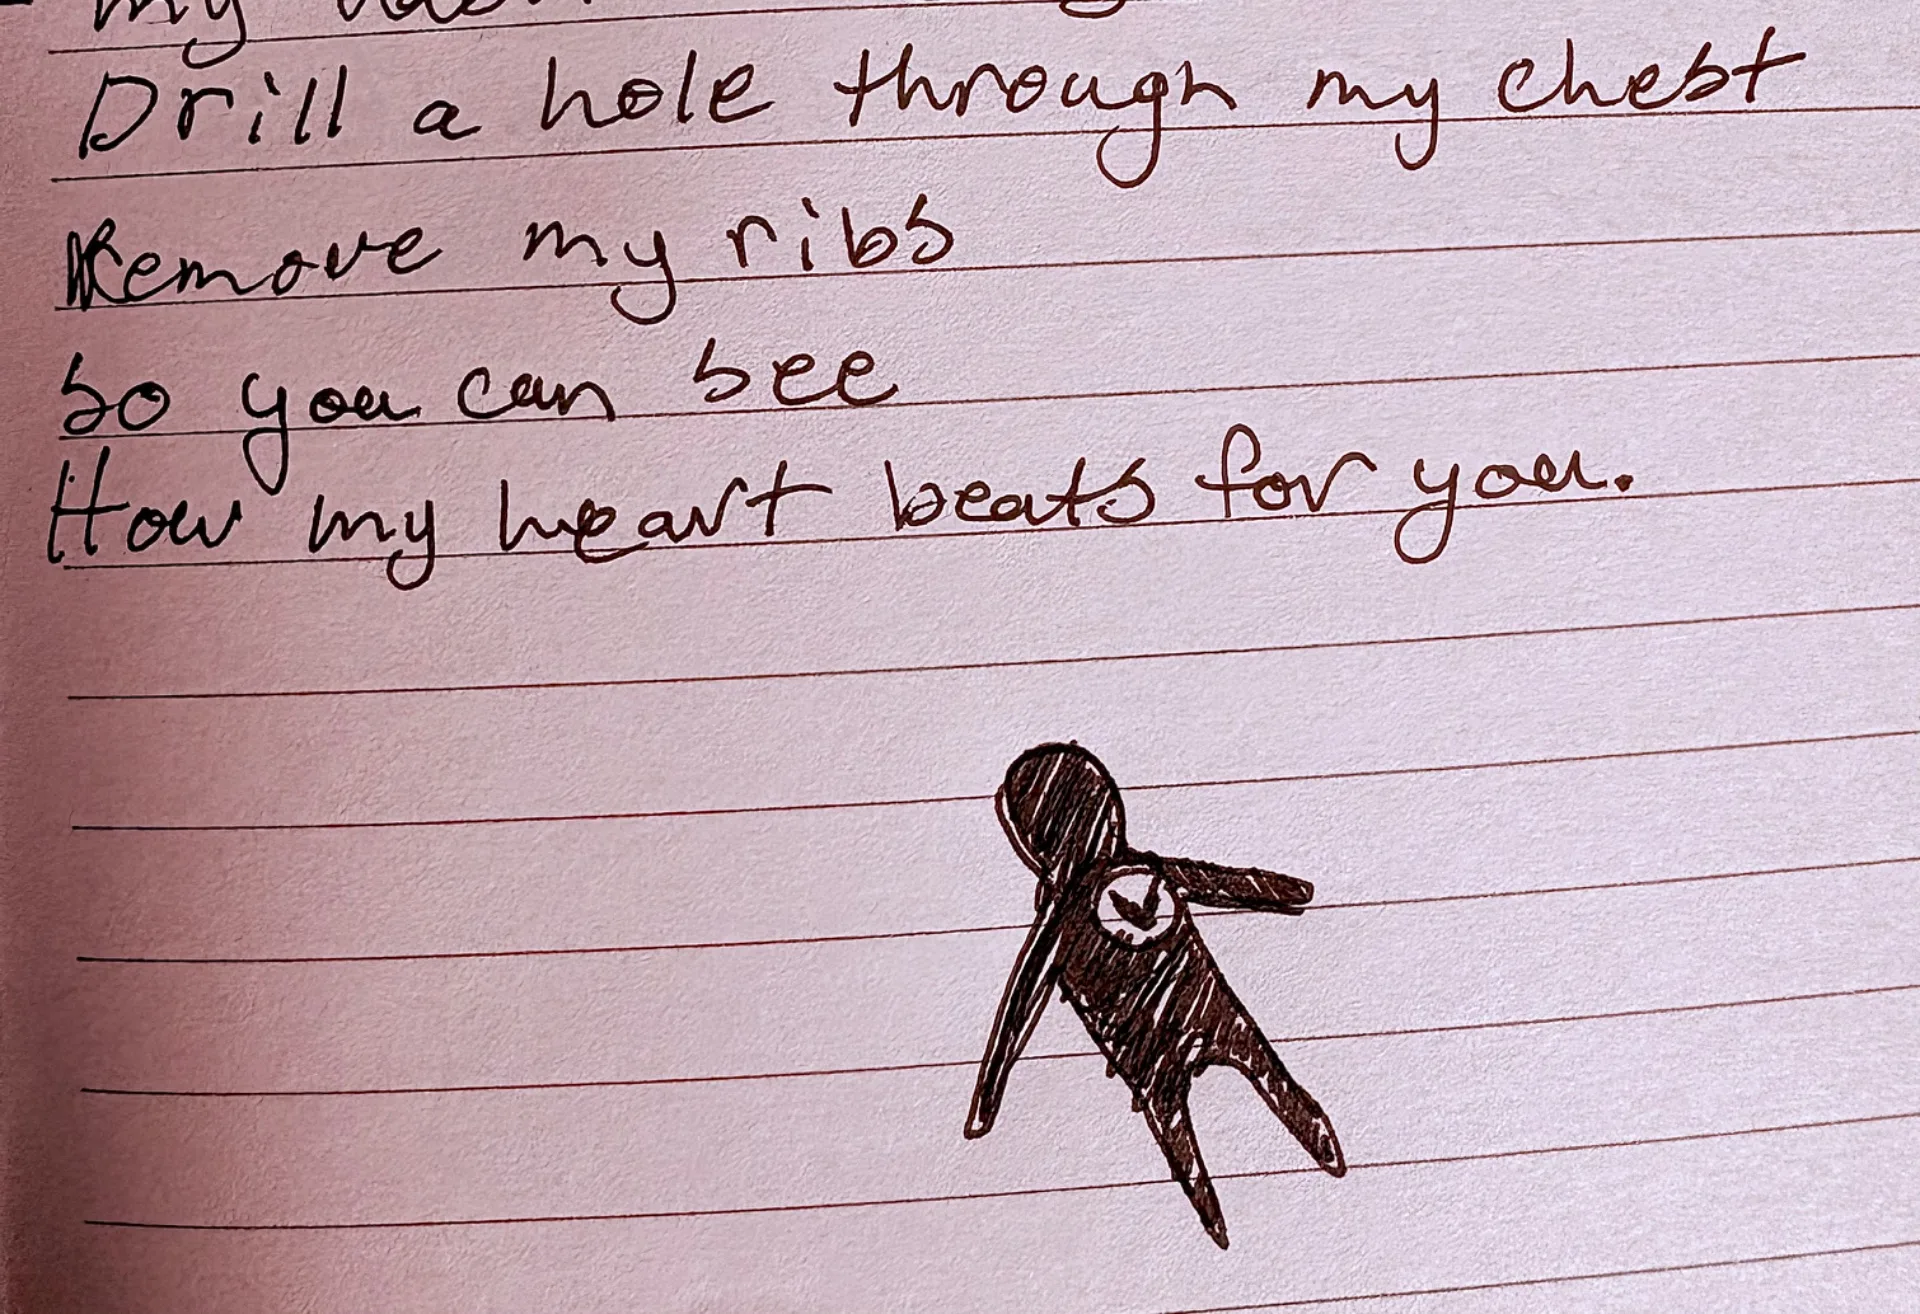 my
Drill a hole through my chest
Remove my ribs
So you can see
How my heart beats for you.